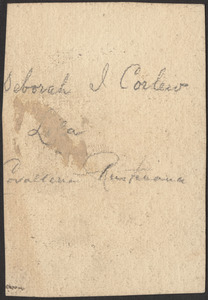 Deborah I Corlew
La
Cavalleria Rusticana